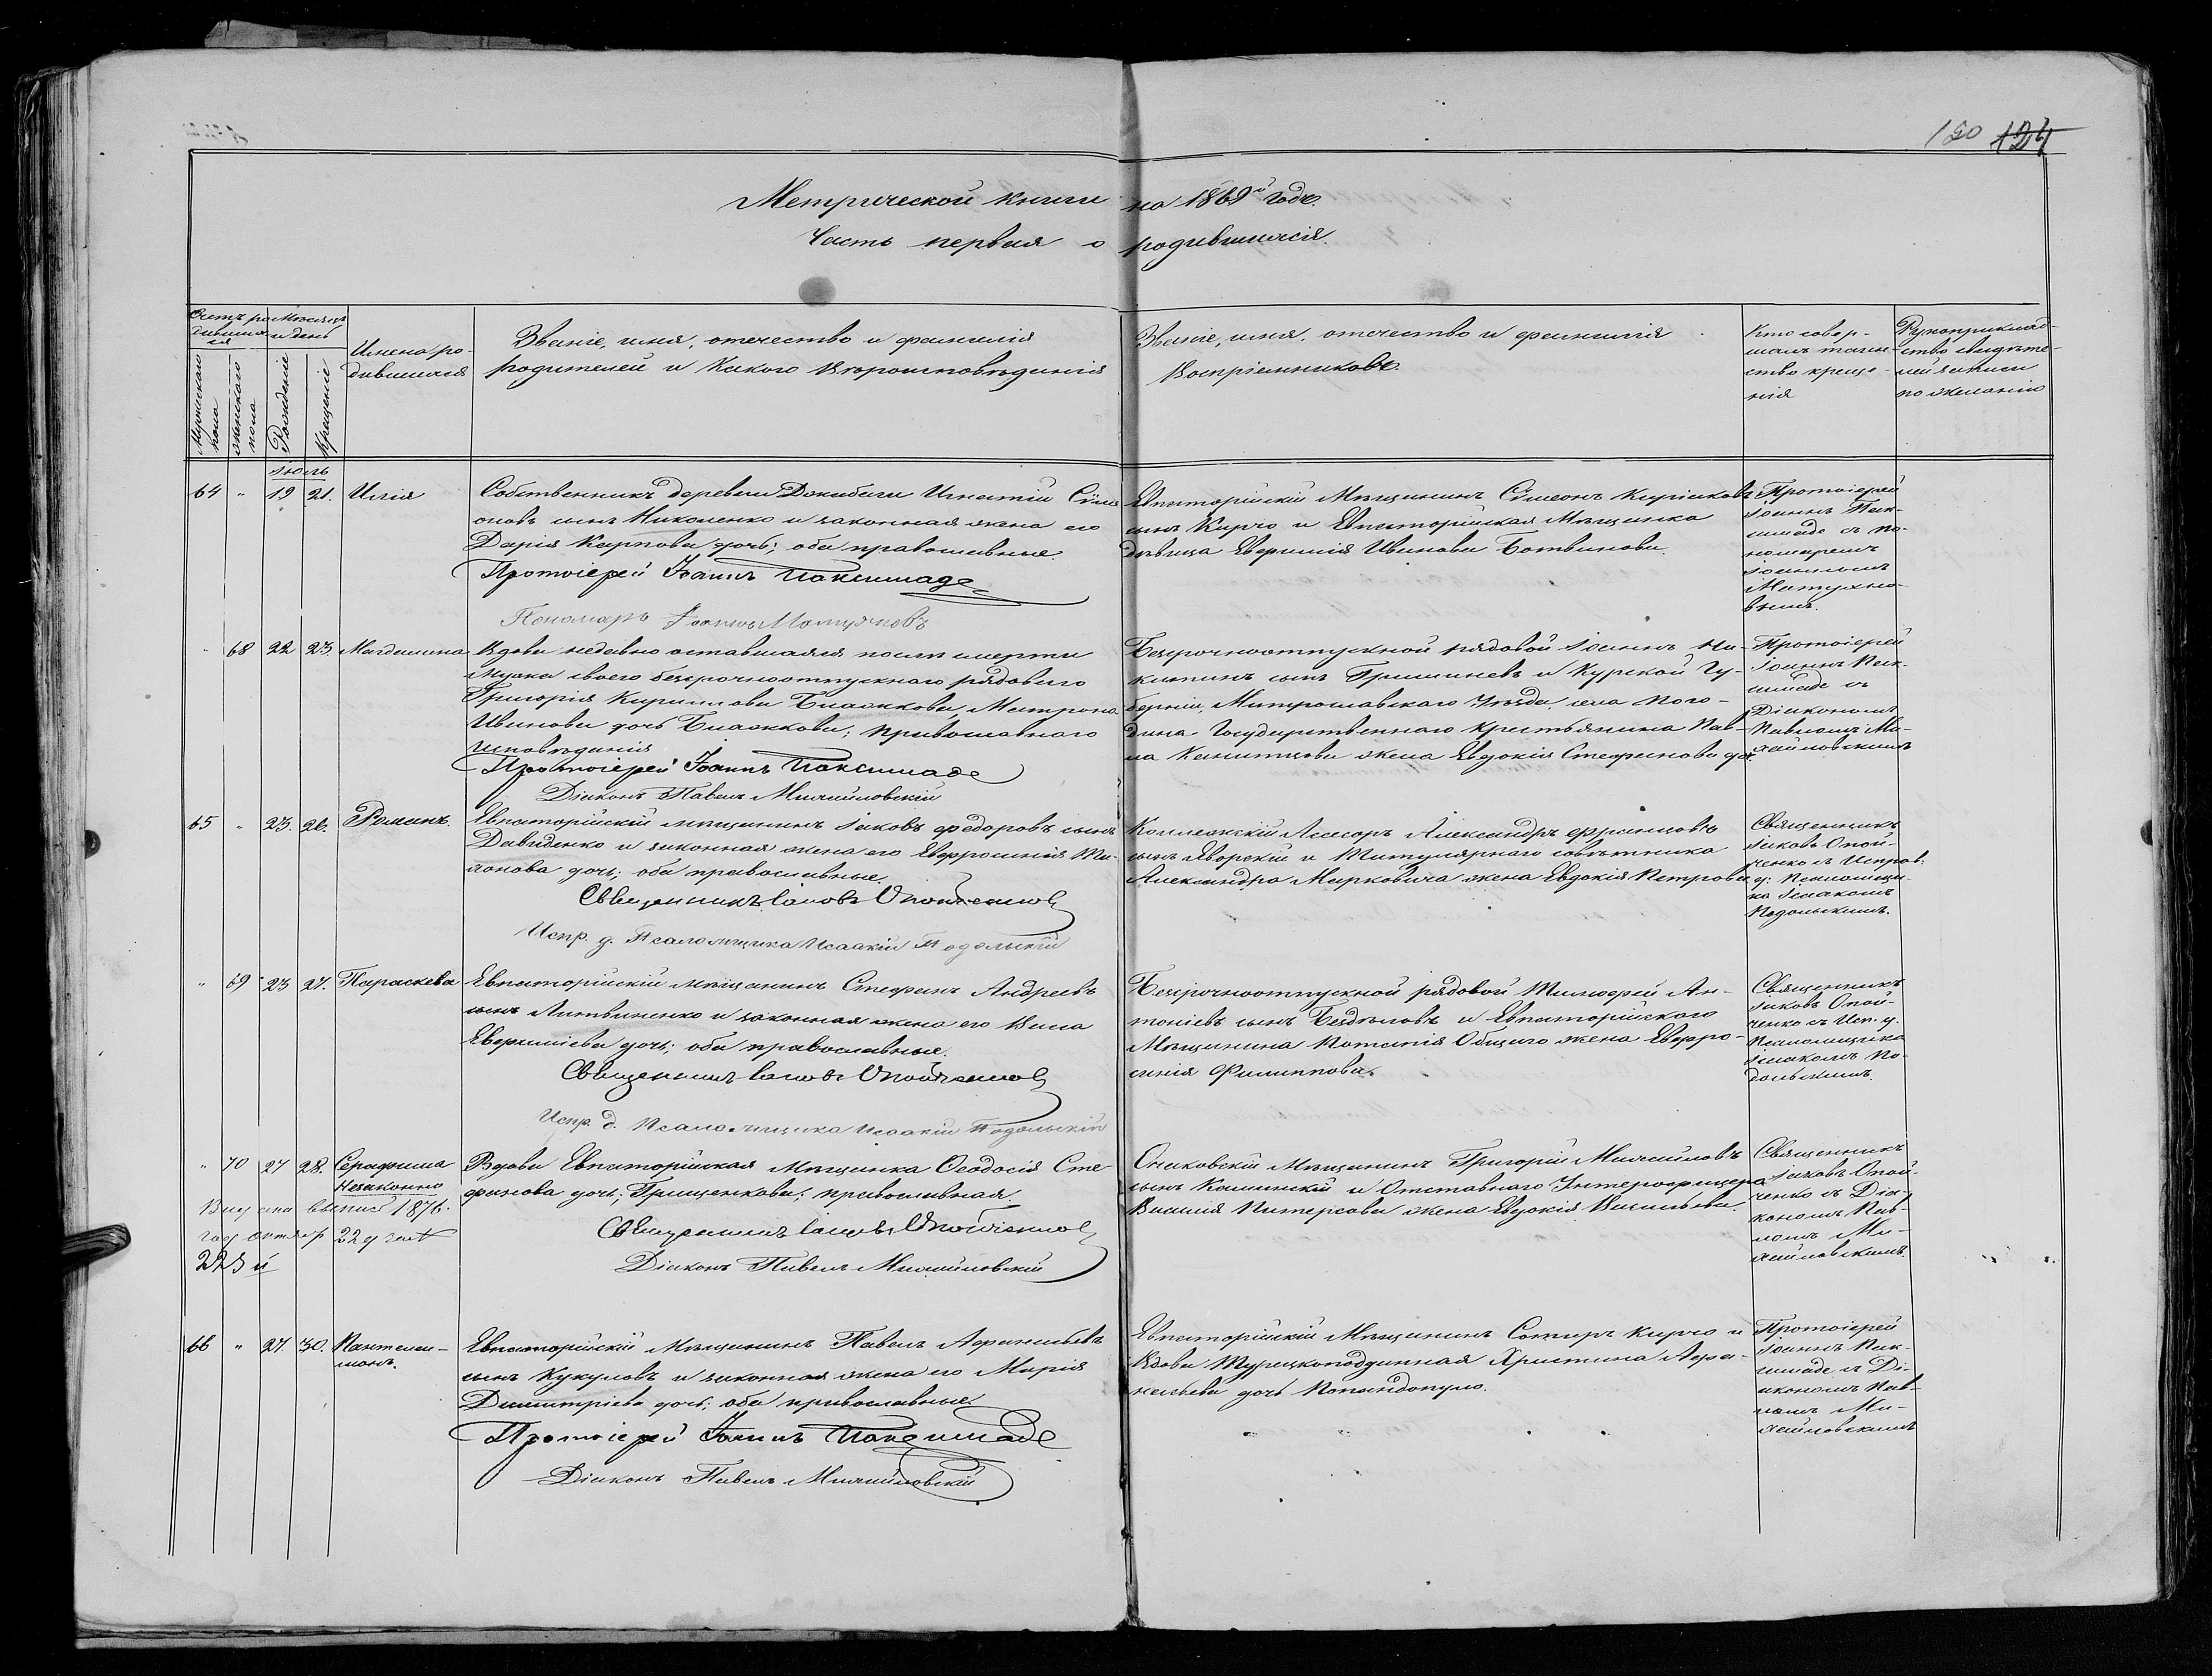 124
Метрической книги на 1869й годъ.
Часть первая о родившихся.
Счетъ родившихся
Мужескаго пола
женскаго пола
Мѣсяцъ и день
Рожденіе
Крещеніе
Имена родившихся
Званіе, имя, отечество и фамилія
родителей и какого вѣроисповѣданія
Званіе, имя, отечество и фамилія
Воспріемниковъ.
Кто совер-
шалъ таин-
ство креще-
нія
Рукоприклад-
ство свидѣте-
лей записи
по желанію
Іюль
64 " 19 21. Илія
Собственникъ деревни Игнатій Симе
оновъ сынъ Николенко и законная жена его
Дарія Карпова дочь; оба православные.
Протоіерей Іоаннъ Паксимаде
Пономарь Іоаннъ
Евпаторійскій Мѣщанинъ Сімеонъ
сынъ Кирчо и Евпаторійская Мѣщанка
дѣвица Евфимія Иванова Ботвинова.
Протоіерей
Іоаннъ Пак-
симаде съ по-
номаремъ
Іоанномъ
" 68 22 23. Магдалина
Вдова недавно оставшаяся послѣ смерти
мужа своего безсрочноотпускнаго рядоваго
Григорія Кирилова Матрона
Иванова дочь православнаго
исповѣданія
Протоіерей Іоаннъ Паксимаде
Діаконъ Павелъ Михайловскій
Безсрочноотпускной рядовой Іоаннъ Ни-
китинъ сынъ Гришиневъ и Курской Гу-
берніи, Уѣзда села Пого-
дина Государственнаго Крестьянина Пав-
ла жена Евдокія Стефанова до.
Протоіерей
Іоаннъ Пак-
симаде съ
Діакономъ
Павломъ Ми-
хайловскимъ
65 " 23. 26. Романъ.
Евпаторійскій мѣщанинъ Іаковъ Федоровъ сынъ
Давиденко и законная жена его Евфросинія Ти-
хонова дочь; оба православные.
Священникъ Іаковъ
Испр. д. Псаломщика Исаакій Подольскій
Коллежскій Асесоръ Александръ Францовъ
сынъ Яворскій и Титулярнаго совѣтника
Александра Марковича жена Евдокія Петрова
Священникъ
Іаковъ Опой-
ченко съ Исправ.
д. Псаломщи-
ка Исаакомъ
Подольскимъ.
" 69 23 27. Параскева
Евпаторійскій мѣщанинъ Стефанъ Андреевъ
сынъ Литвиненко и законная жена его Васса
Евфиміева дочь; оба православные.
Священникъ Іаковъ
Испр. д. Псаломщика Исаакій Подольскій
Безсрочноотпускной рядовой Тимофей Ан-
тоніевъ сынъ Бездѣловъ и Евпаторійскаго
Мѣщанина Потапія Общаго жена Евфро-
синія Филиппова.
Священникъ
Іаковъ Опой-
ченко съ Исп. д.
Псаломщика
Исаакомъ По-
дольскимъ.
" 70 27 28. Серафима
Незаконно
Выдана выпись 1876.
год. октября 22 д за №
223 й
Вдова Евпаторійская Мѣщанка Ѳеодосія Сте
фанова дочь; Грищенкова; православная.
Священникъ Іаковъ
Діаконъ Павелъ Михайловскій
Очаковскій Мѣщанинъ Григорій Михайловъ
сынъ Каминскій и Отставнаго Унтерофицера
Василія Питерсова жена Евдокія Васильева.
Священникъ
Іаковъ Опой-
ченко съ Діа-
кономъ Пав-
ломъ Ми-
хайловскимъ
66 " 27. 30. Пантелеи-
монъ.
Евпаторійскій Мѣщанинъ Павелъ Афанасьевъ
сынъ Кукуловъ и законная жена его Марія
Дмитріева дочь; оба православные.
Протоіерей Іоаннъ Паксимаде
Діаконъ Павелъ Михайловскій
Евпаторійскій Мѣщанинъ Сотиръ Кирчо и
Вдова Турецкоподданная Христина Афа-
насьева дочь Попандопуло.
Протоіерей
Іоаннъ Пак-
симаде съ Ді-
акономъ Пав-
ломъ Ми-
хайловскимъ